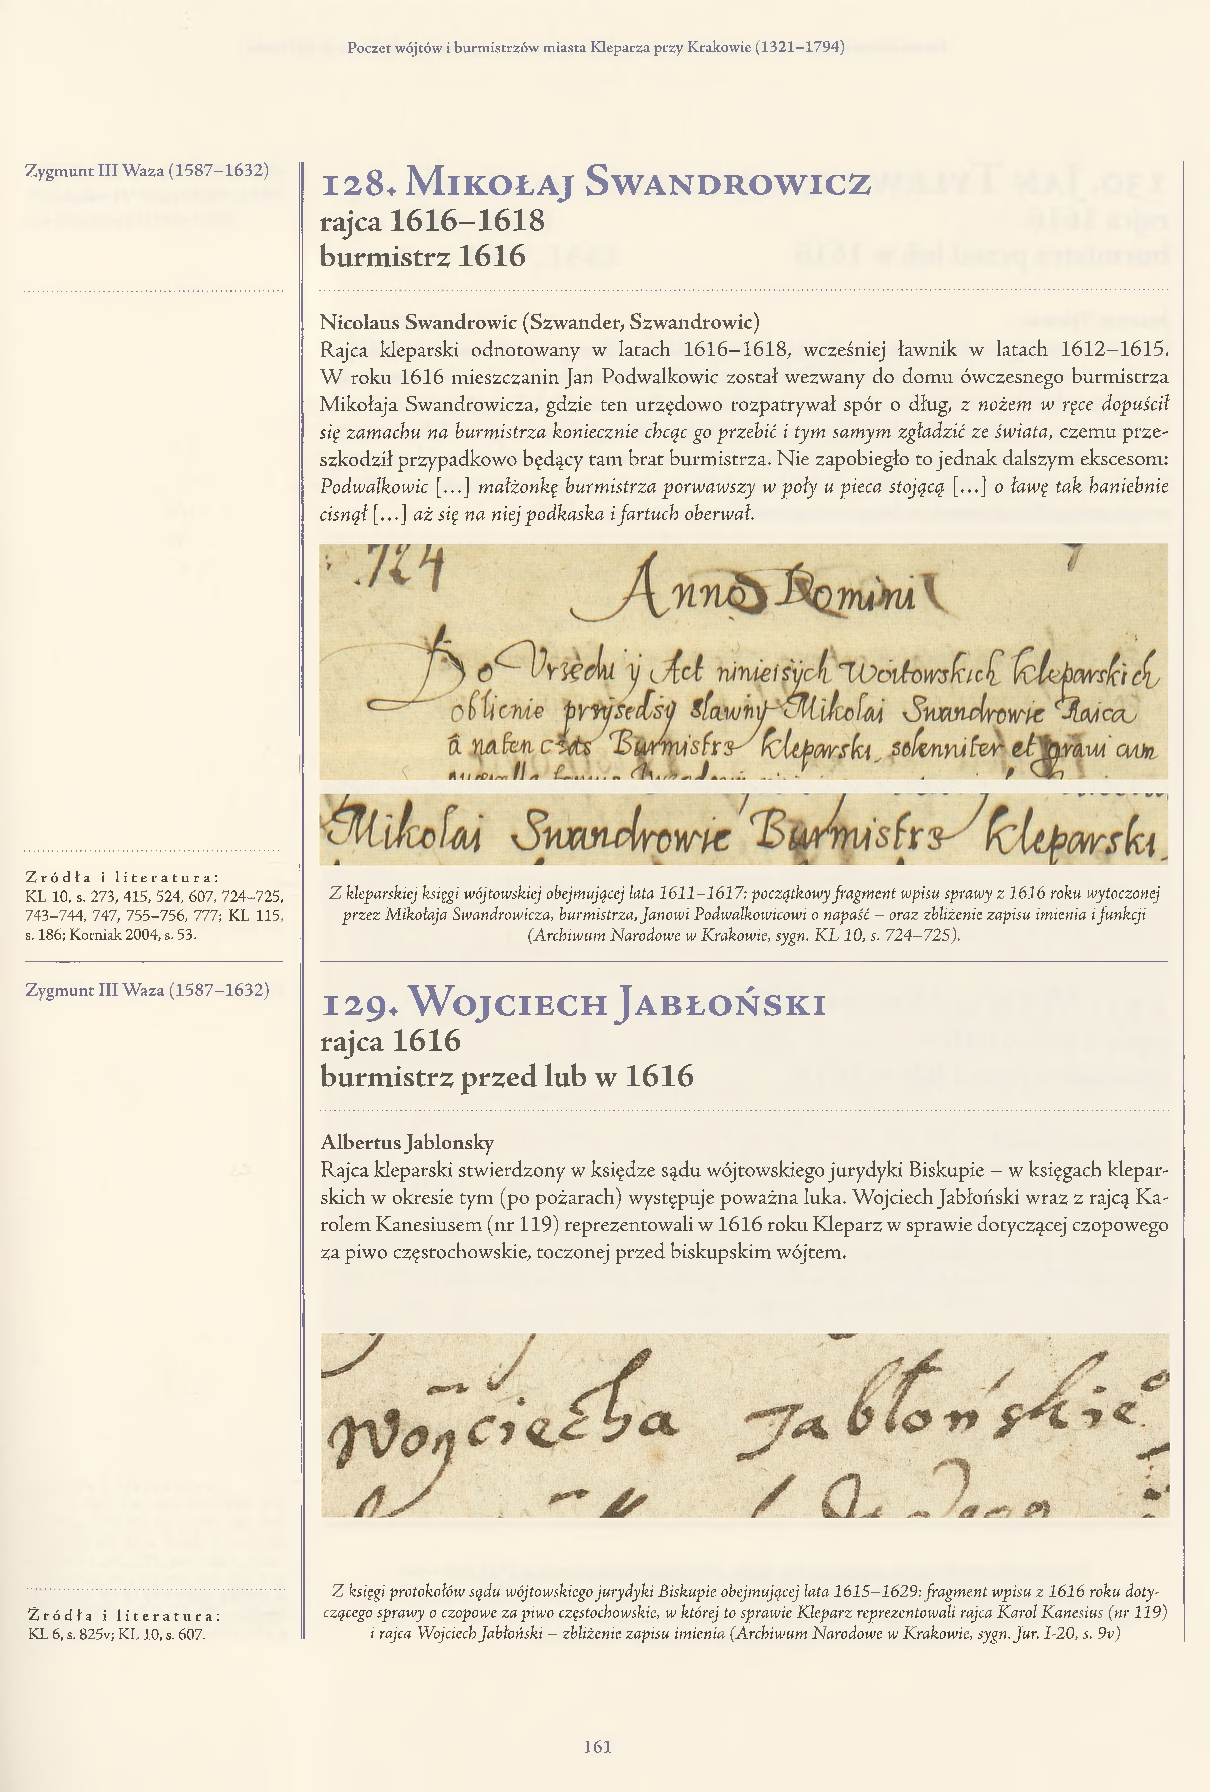 Poczet wójtów i burmistrzów miasta Kleparza przy Krakowie (1321–1794)
Zygmunt III Waza (1587–1632)
128. Mikołaj Swandrowicz
rajca 1616–1618
burmistrz 1616
Nicolaus Swandrowic (Szwander, Szwandrowic)
Rajca kleparski odnotowany w latach 1616–1618, wcześniej ławnik w latach 1612–1615.
W roku 1616 mieszczanin Jan Podwalkowic został wezwany do domu ówczesnego burmistrza
Mikołaja Swandrowicza, gdzie ten urzędowo rozpatrywał spór o dług, z nożem w ręce dopuścił
się zamachu na burmistrza koniecznie chcąc go przebić i tym samym zgładzić ze świata, czemu prze-
szkodził przypadkowo będący tam brat burmistrza. Nie zapobiegło to jednak dalszym ekscesom:
Podwalkowic [...] małżonkę burmistrza porwawszy w poły u pieca stojącą [...] o ławę tak haniebnie
cisnął [...] aż się na niej podkaska i fartuch oberwał.
724
Anno Domini
Do Vrzędu y Act ninieisych Woitowskich Kleparskich
oblicnie przysedsy slawny Mikolai Swandrowic Raica
a naten czas Burmistrz Kleparski, solenniter et gravi cum
Mikolai Swandrowic Burmistrz Kleparski
Źródła i literatura:
KL 10, s. 273, 415, 524, 607, 724–725,
743–744, 747, 755–756, 777; KL 115,
s. 186; Korniak 2004, s. 53.
Z kleparskiej księgi wójtowskiej obejmującej lata 1611–1617: początkowy fragment wpisu sprawy z 1616 roku wytoczonej
przez Mikołaja Swandrowicza, burmistrza, Janowi Podwalkowicowi o napaść – oraz zbliżenie zapisu imienia i funkcji
(Archiwum Narodowe w Krakowie, sygn. KL 10, s. 724–725).
Zygmunt III Waza (1587–1632)
129. Wojciech Jabłoński
rajca 1616
burmistrz przed lub w 1616
Albertus Jablonsky
Rajca kleparski stwierdzony w księdze sądu wójtowskiego jurydyki Biskupie – w księgach klepar-
skich w okresie tym (po pożarach) występuje poważna luka. Wojciech Jabłoński wraz z rajcą Ka-
rolem Kanesiusem (nr 119) reprezentowali w 1616 roku Kleparz w sprawie dotyczącej czopowego
za piwo częstochowskie, toczonej przed biskupskim wójtem.
Woÿciecha Jabłońskie
Źródła i literatura:
KL 6, s. 825v; KL 10, s. 607.
Z księgi protokołów sądu wójtowskiego jurydyki Biskupie obejmującej lata 1615–1629: fragment wpisu z 1616 roku doty-
czącego sprawy o czopowe za piwo częstochowskie, w której to sprawie Kleparz reprezentowali rajca Karol Kanesius (nr 119)
i rajca Wojciech Jabłoński – zbliżenie zapisu imienia (Archiwum Narodowe w Krakowie, sygn. Jur. I-20, s. 9v)
161